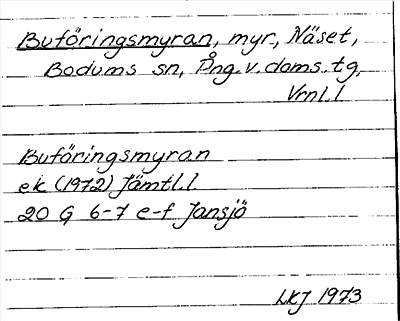 Buföringsmyran, myr, Näset,
Bodums sn, Ång.v.doms.tg,
Vrnl.l
Buföringsmyran
ek (1972) Jämtl.l.
20 G 6-7 e-f Jansjö
LKJ 1973